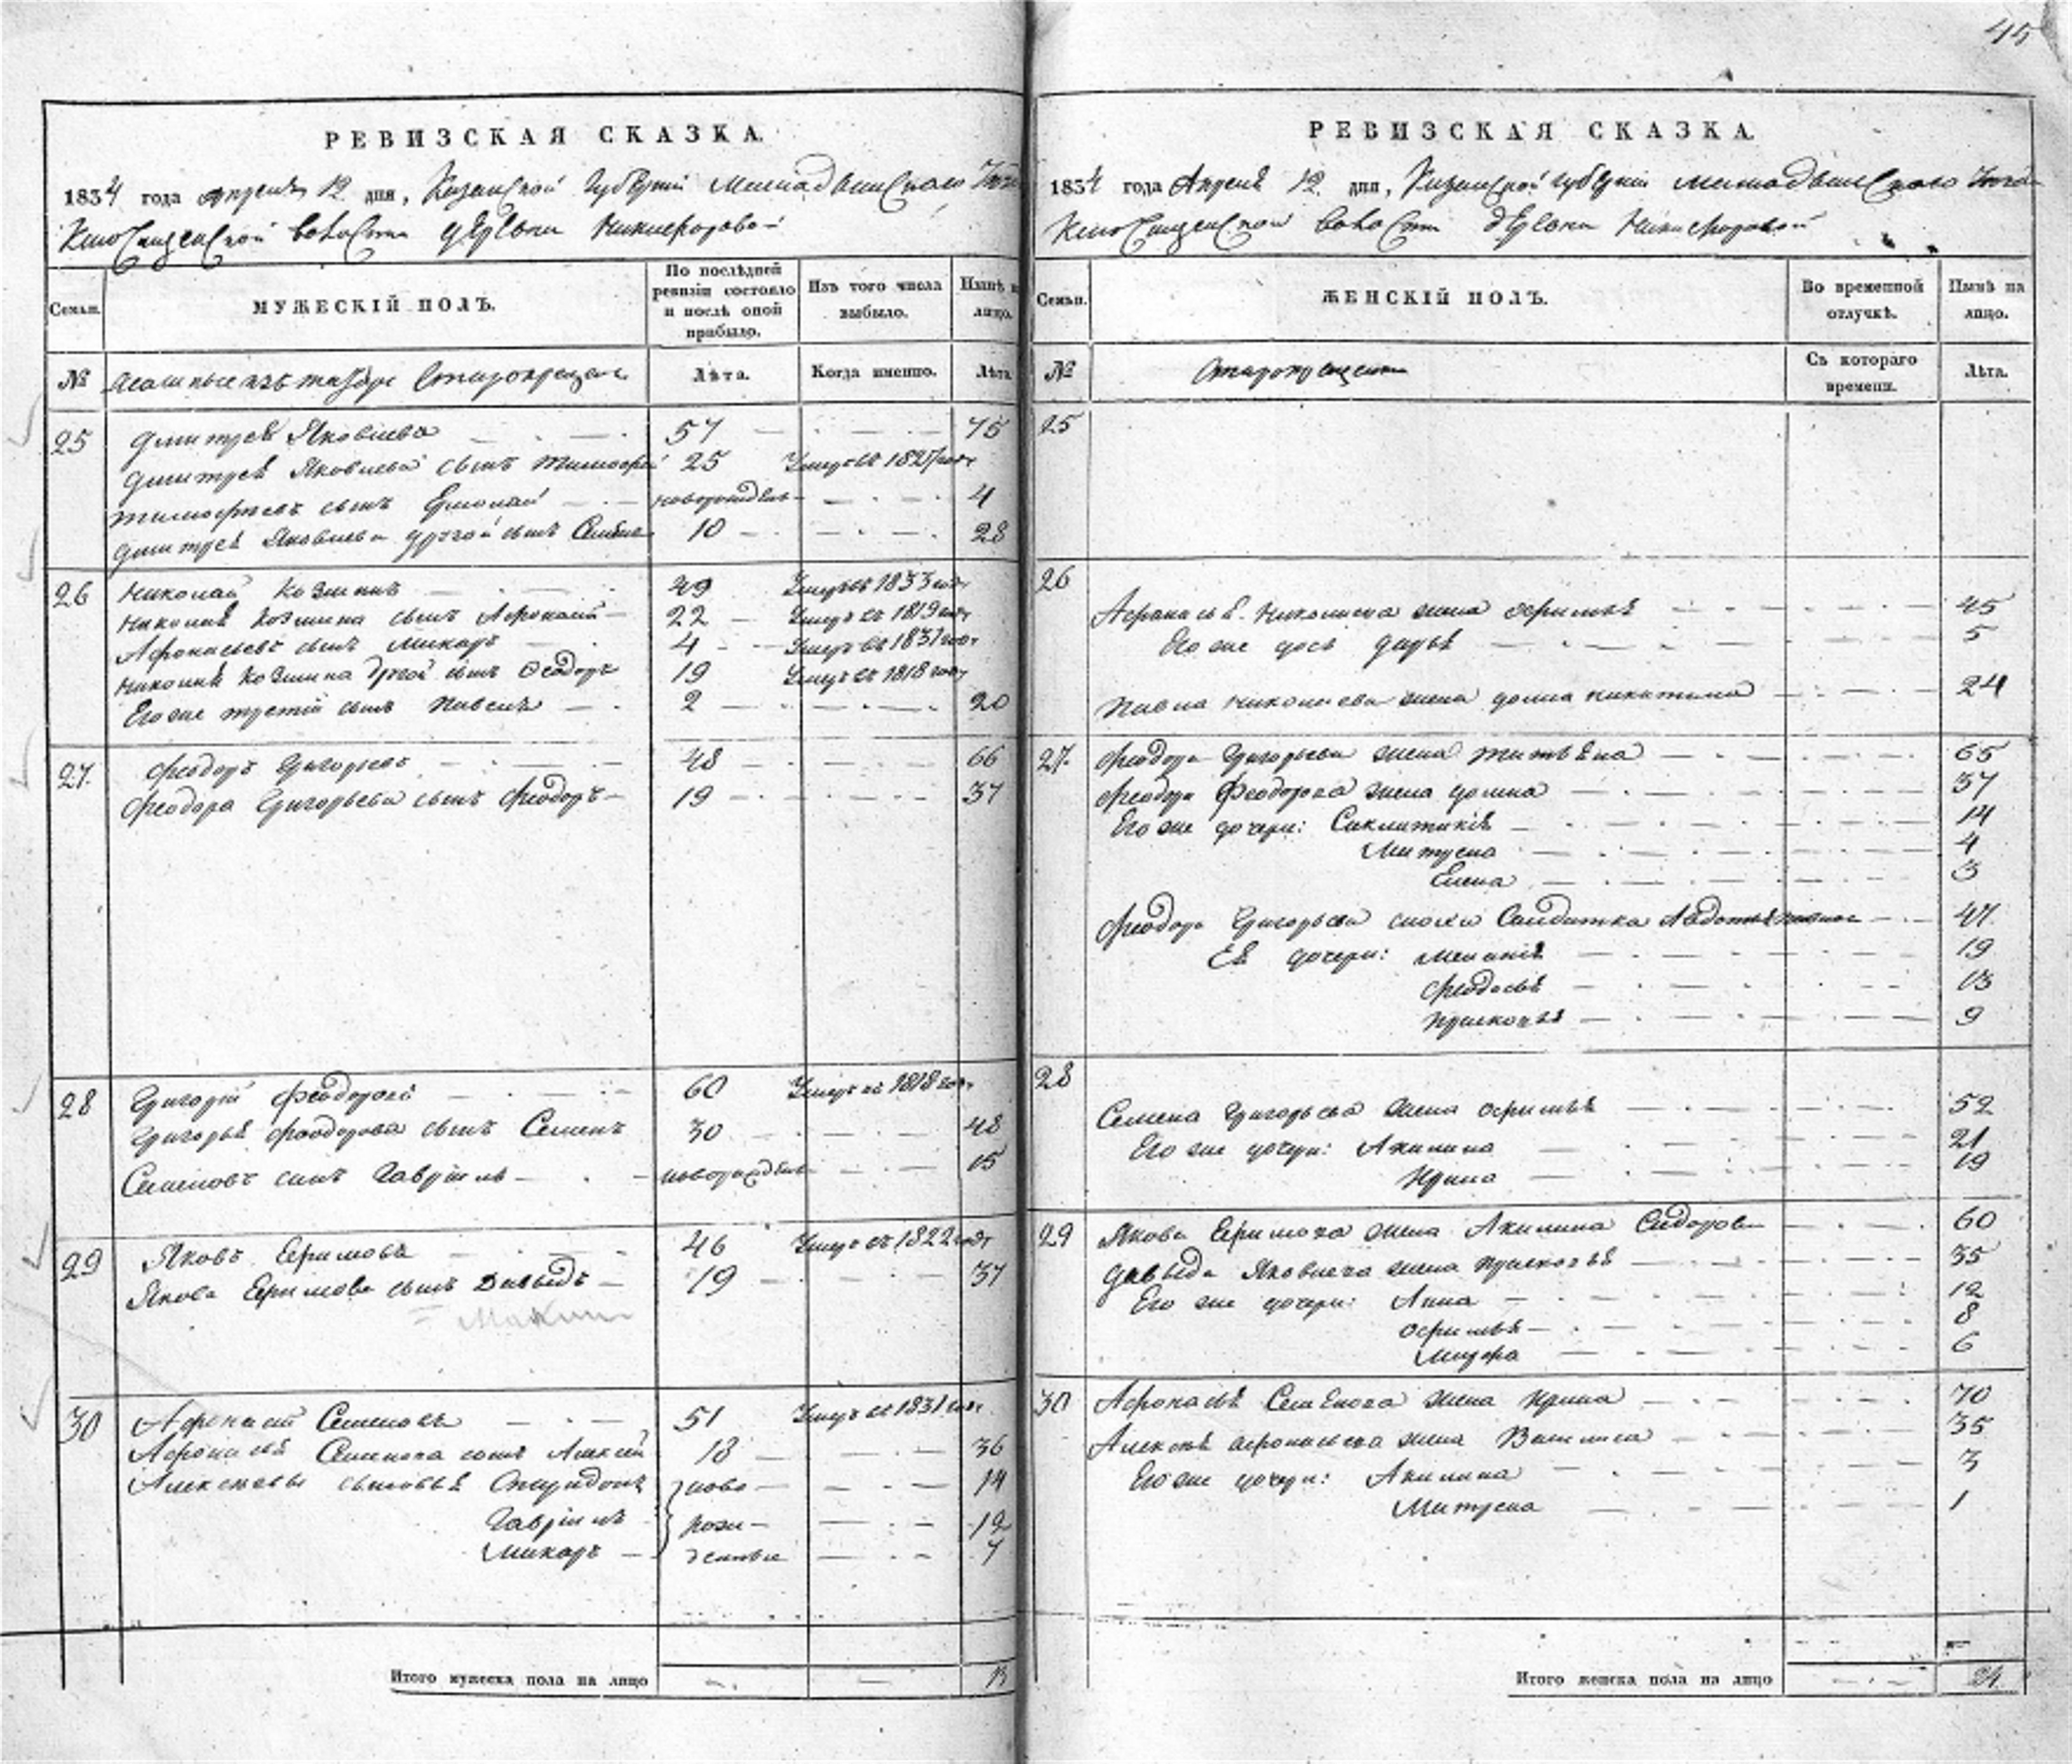 45
РЕВИЗСКАЯ СКАЗКА.
1834 года апреля 12 дня, Казанской Губернiи Мамадышскаго
волости деревни Никифоровой
Семьи.
МУЖЕСКIЙ ПОЛЪ.
По послѣдней ревизiи состояло и послѣ оной прибыло.
Изъ того числа выбыло.
Нынѣ на лицо.
№
Ясашные изъ татаръ Старокрещен
Лѣта.
Когда именно.
Лѣта
25 Дмитрей Яковлевъ 57 75
Дмитрея Яковлева сынъ Тимофей 25 Умеръ въ 1827 году
Тимофеевъ сынъ Ермолай новорожден 4
Дмитрея Яковлева другой сынъ 10 28
26 Николай Козминъ 49 Умеръ въ 1833 году
Николая Козмина сынъ Афонасiй 22 Умеръ въ 1819 году
Афонасьевъ сынъ Макаръ 4 Умеръ въ 1831 году
Николая Козмина другой сынъ Феодоръ 19 Умеръ въ 1818 году
Его же третiй сынъ Павелъ 2 20
27. Феодоръ Григорьевъ 48 66
Феодора Григорьева сынъ Феодоръ 19 37
28 Григорiй Феодоровъ 60 Умеръ въ 1818 году
Григорья Феодорова сынъ Семенъ 30 48
Семеновъ сынъ Гаврiилъ новорожден 15
29 Яковъ Ефимовъ 46 Умеръ въ 1822 году
Якова Ефимова сынъ Давыдъ 19 37
30 Афонасiй Семеновъ 51 Умеръ въ 1831 году
Афонасья Семенова сынъ Алексей 18 36
Алексеевы сыновья Спиридонъ ново 14
Гаврiилъ рож 12
Макаръ денные 7
Итого мужеска пола на лицо 13
РЕВИЗСКАЯ СКАЗКА.
1834 года Апреля 12 дня, Казанской губернiи Мамадышскаго
волости деревни Никифоровой
Семьи.
ЖЕНСКIЙ ПОЛЪ.
Во временной отлучкѣ.
Нынѣ на лицо.
№
Старокрещены
Съ котораго времени.
Лѣта.
25
26
Афонасья Николаева жена Офимья 45
Его же дочь Дарья 5
Павла Николаева жена Домна Никитина 24
27. Феодора Григорьева жена Татьяна 65
Феодора Феодорова жена Домна 37
Его же дочери: Саклитикiя 14
Матрена 4
Елена 3
Феодора Григорьева сноха Солдатка Авдотья 47
Ея дочери: Меланiя 19
Феодосья 13
Прасковья 9
28
Семена Григорьева жена Офимья 52
Его же дочери: Акилина 21
Ирина 19
29 Якова Ефимова жена Акилина Сидорова 60
Давыда Яковлева жена Прасковья 35
Его же дочери: Анна 12
Офимья 8
Марфа 6
30 Афонасья Семенова жена Ирина 70
Алексея Афонасьева жена Василиса 35
Его же дочери: Акилина 3
Матрена 1
Итого женска пола на лицо 24